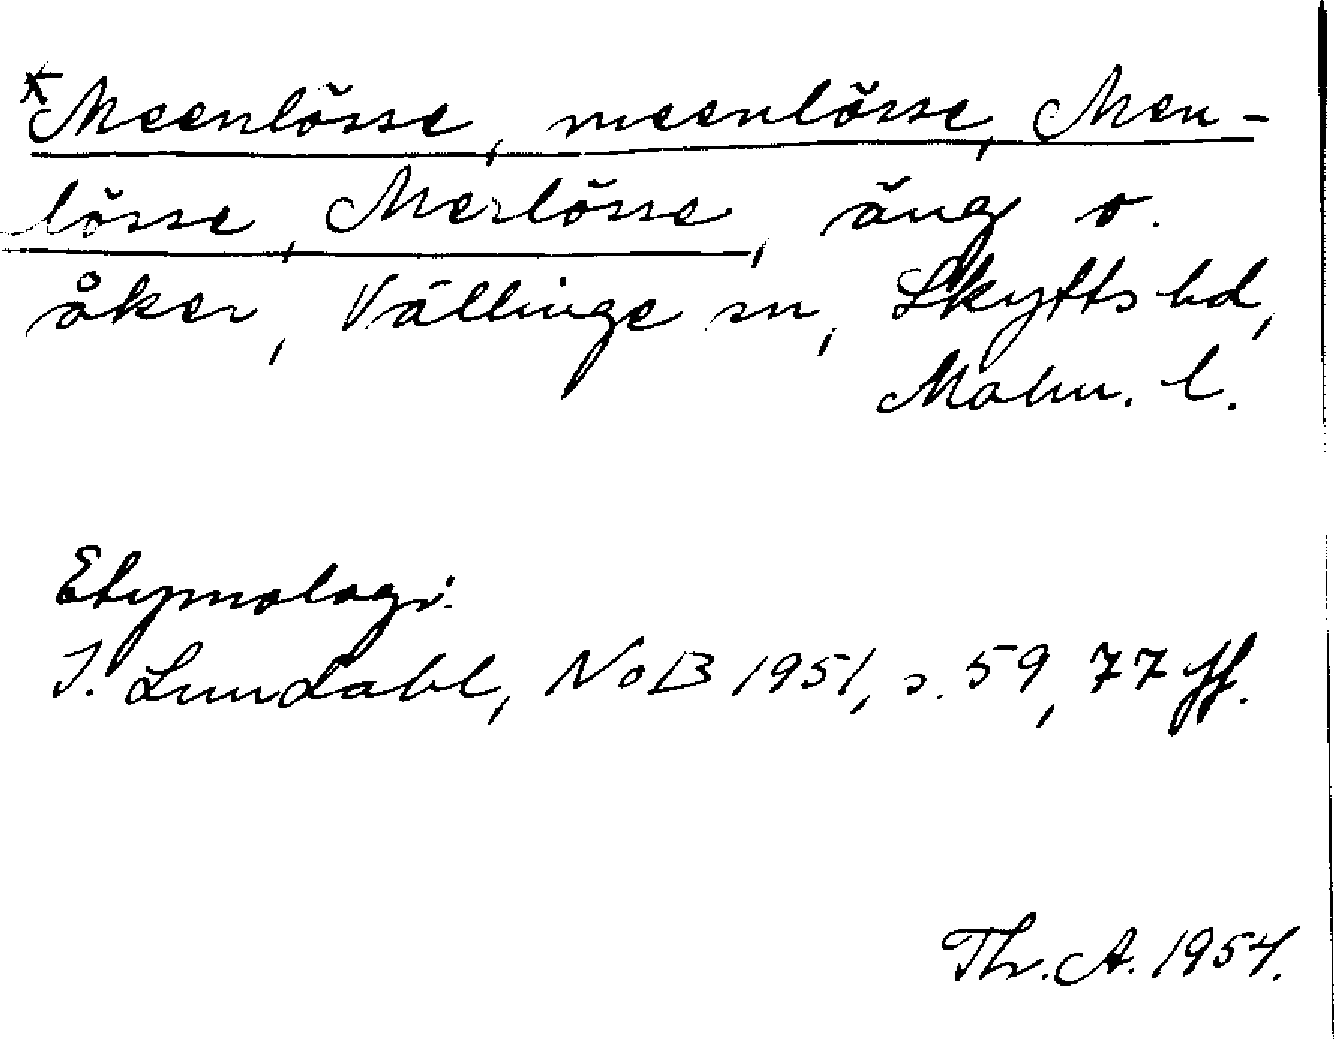 *Meenlösse, meenlösse, Men-
lösse, Merlösse, äng o.
åker, Vällinge sn, Skytts hd,
Malm. l.
Etymologi:
I. Lundahl, NoB 1951, s. 59, 77 ff.
Th. A. 1954.